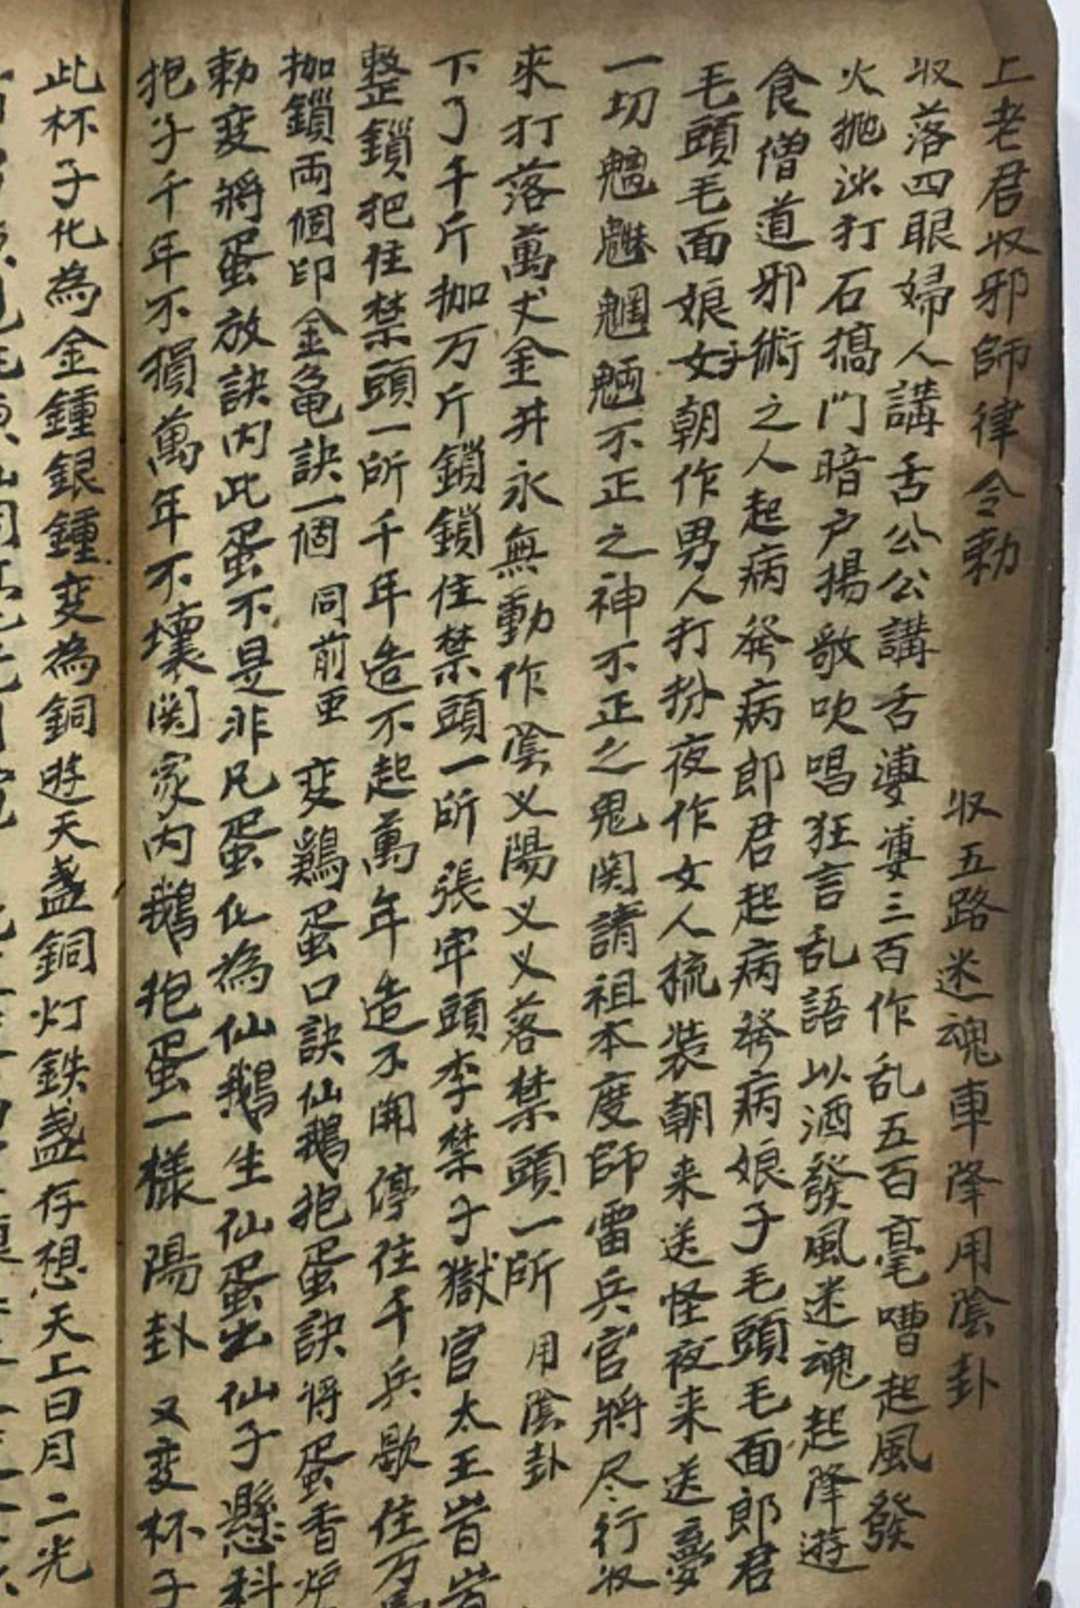 上老君収邪師律令勅　収五路迷魂車降用陰卦
収落四眼婦人講舌公公講舌婆婆三百作乱五百毫嘈起風發
火抛沙打石搞門暗户揚歌吹唱狂言乱語以酒發風迷魂起降遊
食僧道邪術之人起病発病郎君起病発病娘子毛頭毛面郎君
毛頭毛面娘子朝作男人打扮夜作女人梳装朝来送怪夜来送夢
一切魑魅魍魎不正之神不正之鬼関請祖本度師雷兵官將尽行収
來打落萬丈金井永無動作陰乂陽乂乂落禁頭一所 用陰卦
下了千斤枷万斤鎖鎖住禁頭一所張牢頭李禁子獄官太王
整鎖把住禁頭一所千年造不起萬年造不開停住千兵歇住万
枷鎖両個印金亀訣一個 同前 变鷄蛋口訣仙鵝抱蛋訣将蛋香炉
勅変將蛋放訣内此蛋不是非凡蛋化為仙鵝生仙蛋出仙子懸科
抱子千年不損萬年不壞関家内鵝抱蛋一樣陽卦 又变杯子
此杯子化為金鍾銀鍾变為銅遊天盞銅灯鉄盞存想天上日月二光